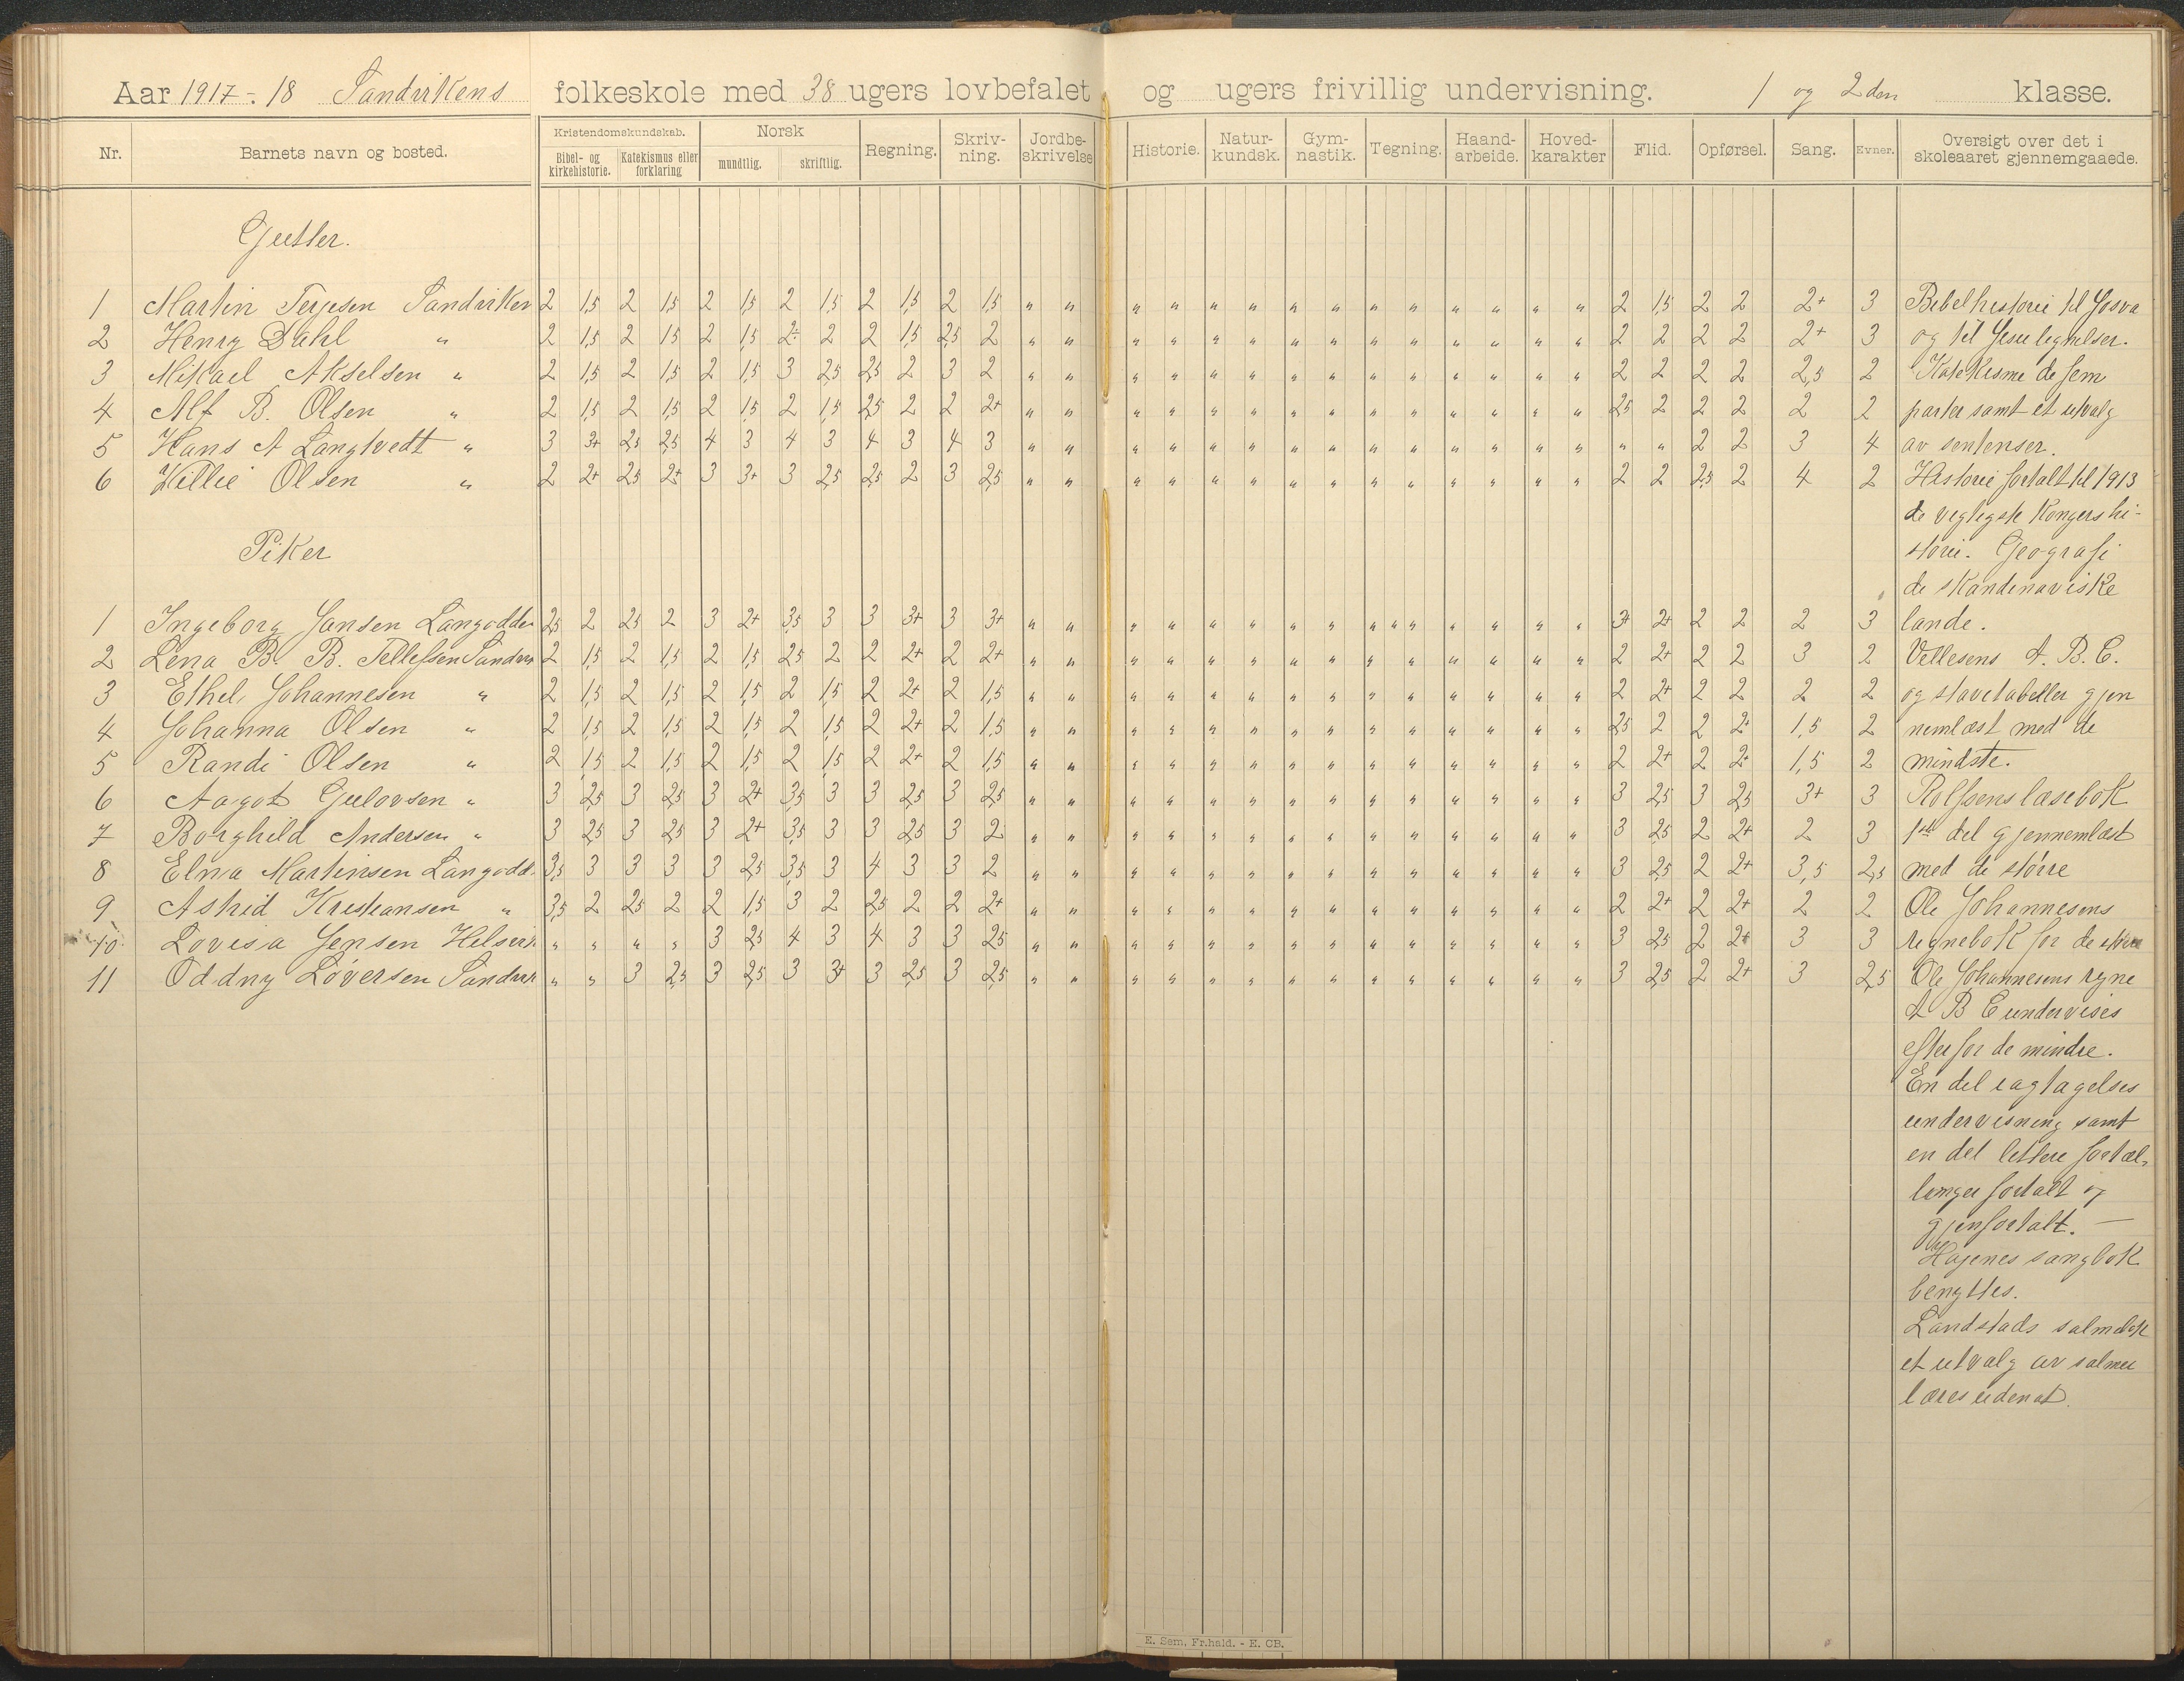 Aar 1917-18 Sandvikens folkeskole med 38 ugers lovbefalet og ugers frivillig undervisning. 1 og 2den klasse.
Nr. Barnets navn og bosted. Kristendomskundskab. Norsk Regning. Skriv- ning. Jordbe- skrivelse Historie. Natur- kundsk. Gym- nastik. Tegning. Haand- arbeide. Hoved- karakter Flid. Opførsel. Sang. Evner. Oversigt over det i skoleaaret gjennemgaaede.
Bibel- og kirkehistorie. Katekismus eller forklaring mundtlig. skriftlig.
Gutter.
1 Martin Terjesen Sandviken 2 1,5 2 1,5 2 1,5 2 1,5 2 1,5 2 1,5 " " " " " " " " " " " " " " 2 1,5 2 2 2+ 3 Bibelhistorie til Josva
2 Henry Dahl " 2 1,5 2 15 2 1,5 2÷ 2 2 1,5 2,5 2 " " " " " " " " " " " " " " 2 2 2 2 2+ 3 og til Jesu lignelser.
3 Mikael Akselsen " 2 1,5 2 1,5 2 1,5 3 2,5 2,5 2 3 2 " " " " " " " " " " " " " " 2 2 2 2 2,5 2 Katekisme de fem
4 Alf B. Olsen " 2 1,5 2 1,5 2 1,5 2 1,5 2,5 2 2 2+ " " " " " " " " " " " " " " 25 2 2 2 2 2 parter samt et utvalg
5 Hans A Langtvedt " 3 3+ 2,5 2,5 4 3 4 3 4 3 4 3 " " " " " " " " " " " " " " " " 2 2 3 4 av sentenser.
6 Willie Olsen " 2 2+ 25 2+ 3 3+ 3 2,5 2,5 2 3 2,5 " " " " " " " " " " " " " " 2 2 2,5 2 4 2 Historie fortalt til 1913
de vigtigste kongers hi-
Piker
storie. Geografi
de skandinaviske
1 Ingeborg Jansen Langodden 2,5 2 25 2 3 2+ 3,5 3 3 3+ 3 3+ " " " " " " " " " " " " " " " 3+ 2+ 2 2 2 3 lande.
2 Lena B. B. Tellefsen Sandvik 2 1,5 2 1,5 2 1,5 25 2 2 2+ 2 2+ " " " " " " " " " " " " " " 2 2+ 2 2 3 2 Vellesens A. B. C.
3 Ethel Johannesen " 2 1,5 2 1,5 2 1,5 2 1,5 2 2+ 2 1,5 " " " " " " " " " " " " " " 2 2+ 2 2 2 2 og stavetabeller gjen
4 Johanna Olsen " 2 1,5 2 1,5 2 1,5 2 1,5 2 2+ 2 1,5 " " " " " " " " " " " " " " 25 2 2 2+ 1,5 2 nemlæst med de
5 Randi Olsen " 2 1,5 2 1,5 2 1,5 2 1,5 2 2+ 2 1,5 " " " " " " " " " " " " " " 2 2+ 2 2+ 1,5 2 mindste.
6 Aagot Gulovsen " 3 2,5 3 2,5 3 2+ 3,5 3 3 2,5 3 2,5 " " " " " " " " " " " " " " 3 2,5 3 2,5 3+ 3 Rolfsens læsebok
7 Borghild Andersen " 3 2,5 3 2,5 3 2+ 3,5 3 3 2,5 3 2 " " " " " " " " " " " " " " 3 2,5 2 2+ 2 3 1ste del gjennemlæst
8 Elna Martinsen Langodd. 3,5 3 3 3 3 2,5 3,5 3 4 3 3 2 " " " " " " " " " " " " " " 3 2,5 2 2+ 3,5 2,5 med de större
9 Astrid Kristiansen " 3,5 2 25 2 2 1,5 3 2 2,5 2 2 2+ " " " " " " " " " " " " " " 2 2+ 2 2+ 2 2 Ole Johannesens
10 Lovisa Jensen " " " " 3 2,5 4 3 4 3 3 25 " " " " " " " " " " " " " " 3 25 2 2+ 3 3 regnebok for de
11 Oddny Löversen Sandvik " " 3 2,5 3 2,5 3 3+ 3 2,5 3 2,5 " " " " " " " " " " " " " " 3 2,5 2 2+ 3 2,5 Ole Johannesens regne
A B C undervises
efter for de mindre.
En del iagtagelses
undervisning samt
en del lettere fortæl-
linger fortalt og
gjenfortalt. —
Hagenes sangbok
benyttes.
Landstads salmebok
et utvalg av salmer
læres udenat.
E. Sem, Fr.hald. - E. CB.